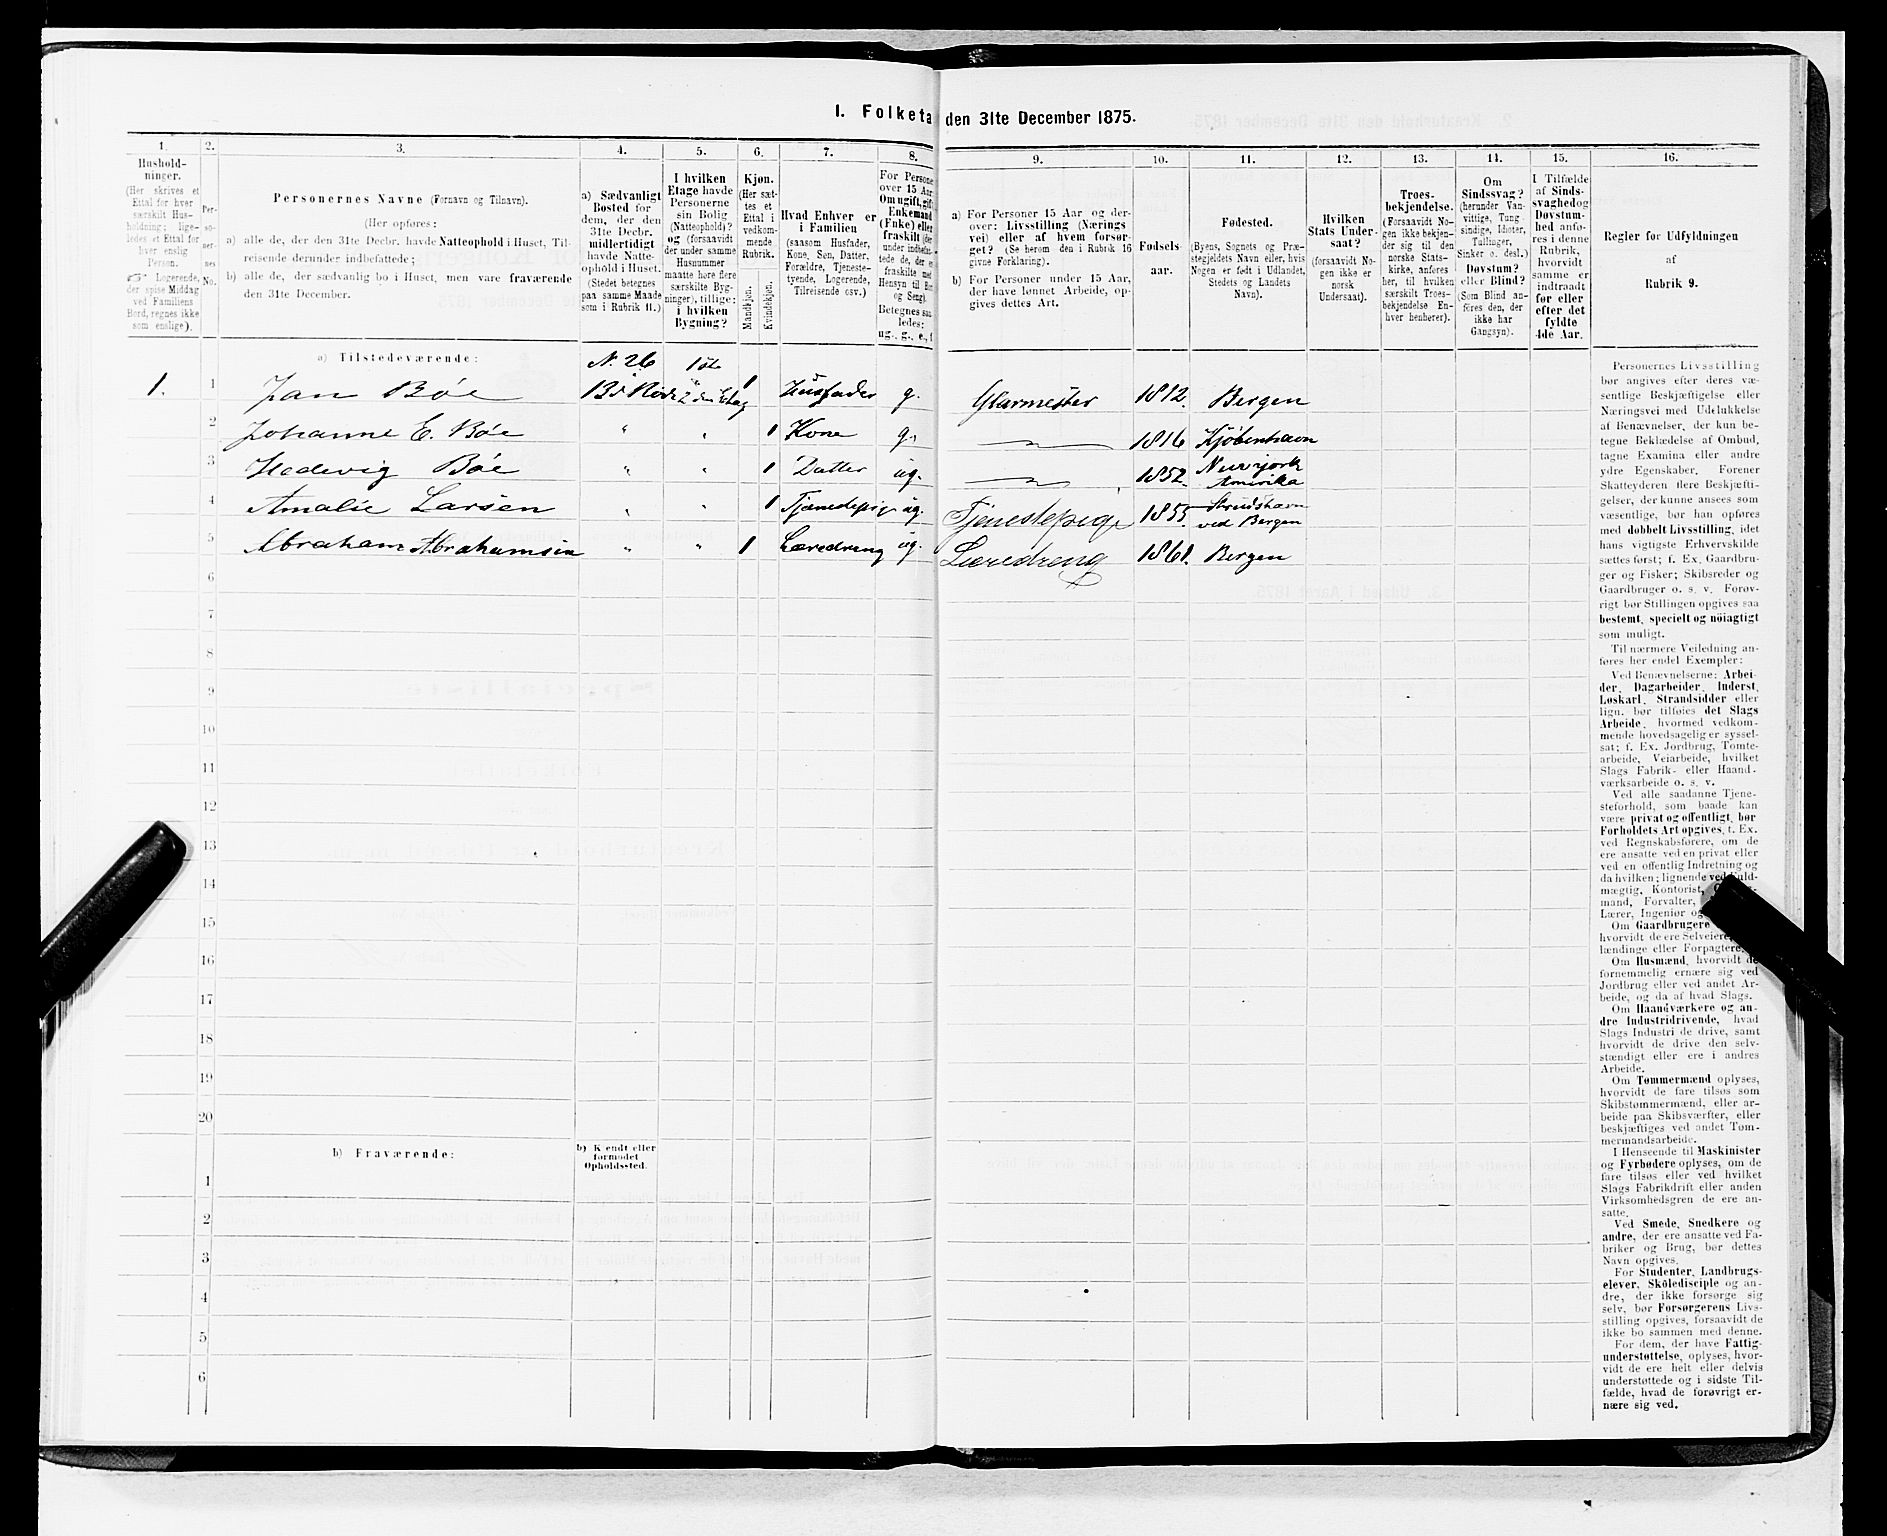 1. Folketæ den 31te December 1875.
1.
Hushold-
ninger.
(Her skrives et
Ettal for hver
særskilt Hus-
holdning; lige-
ledes et Ettal for
hver enslig
Person.
☞ Logerende,
der spise Middag
ved Familiens
Bord, regnes ikke
som enslige).
2.
Per-
so-
ner-
nes
No.
3.
Personernes Navne (Fornavn og Tilnavn).
(Her opføres:
a) alle de, der den 31te Decbr. havde Natteophold i Huset, Til-
reisende derunder indbefattede;
b) alle de, der sædvanlig bo i Huset, men vare fraværende
den 31te December.
4.
a) Sædvanligt
Bosted for
dem, der den
31te Decbr.
midlertidigt
havde Natte-
ophold i Huset.
(Stedet betegnes
paa samme Maade
som i Rubrik 11.)
5.
I hvilken
Etage havde
Personerne
sin Bolig
(Natteophold)?
og (forsaavidt
der under samme
Husnummer
maatte høre flere
særskilte Byg-
ninger), tillige:
i hvilken
Bygning?
6.
Kjøn.
(Her sæt-
tes et
Ettal i
vedkom-
mende
Rubrik.
Mandkjøn.
Kvindekjøn.
7.
Hvad Enhver er
i Familien
(saasom Husfader,
Kone, Søn, Datter,
Forældre, Tjeneste-
tyende, Logerende,
Tilreisende osv.)
8.
For Persone
over 15 Aar
Om ugift, gift
Enkemand
(Enke) elle
fraskilt (der
under indbefat-
tede de, der e
fraskilte med
Hensyn til Bo
og Seng).
Betegnes saa
ledes:
ug., g., e., f
9.
a) For Personer 15 Aar og der-
over: Livsstilling (Nærings
vei) eller af hvem forsør-
get? (Se herom den i Rubrik 16
givne Forklaring).
b) For Personer under 15 Aar,
der have lønnet Arbeide, op-
gives dettes Art.
10.
Fødsels-
aar.
11.
Fødested.
(Byens, Sognets og Præ-
stegjeldets Navn eller, hvis
Nogen er født i Udlandet,
Stedets og Landets
Navn).
12.
Hvilken
Stats Under-
saat?
(forsaavidt No-
gen ikke er
norsk
Undersaat).
13.
Troes-
bekjendelse.
(Forsaavidt No-
gen ikke bekjen-
der sig til den
norske Stats-
kirke, anføres
her, til hvilken
særskilt Troes-
bekjendelse En-
hver henhører).
14.
Om
Sindssvag?
(herunder Van-
vittige, Tung-
sindige, Idioter,
Tullinger,
Sinker o. desl.)
Døvstum?
eller Blind?
(Som Blind an-
føres den, der
ikke har
Gangsyn).
15.
I Tilfælde
af Sinds-
svaghed og
Døvstum-
hed anfø-
res i denne
Rubrik,
hvorvidt
samme er
indtraadt
før eller
efter det
fyldte
4de Aar.
16.
Regler for Udfyldningen
af
Rubrik 9.
a) Tilstedeværende:
N. 26 1ste
1. 1 Jan Bøe 13 Rode 2 den Etag 1 Husfader g. Glarmester 1812. Bergen
2 Johanne E. Bøe " " 1 Kone g. 1816 Kjøbenhavn
3 Hedevig Bøe " " 1 Datter ug. 1852. Newjork
Amerika
4 Amalie Larsen " " 1 ug. Tjenestepige 1855
ved Bergen
5 Abraham Abrahamsen " " 1 Læredreng ug. Læredreng 1861. Bergen
6
7
8
9
10
11
12
13
14
15
16
17
18
19
20
b) Fraværende:
b) Kendt eller
formodet
Opholdssted.
1
2
3
4
5
6
Personernes Livsstilling
bør angives efter deres væ-
sentlige Beskjæftigelse eller
Næringsvei med Udelukkelse
af Benævnelser, der kun be-
tegne Beklædelse af Ombud,
tagne Examina eller andre
ydre Egenskaber. Forener
Skatteyderen flere Beskjæfti-
gelser, der kunne ansees som
væsentlige, bør han opføres
med dobbelt Livsstilling, idet
hans vigtigste Erhvervskilde
sættes først; f. Ex. Gaardbru-
ger og Fisker; Skibsreder og
Gaardbruger o. s. v. Forøv-
rigt bør Stillingen opgives saa
bestemt, specielt og nöiagtigt
som muligt.
Til nærmere Veiledning an-
føres her endel Exempler:
Ved Benævnelserne: Arbei-
der, Dagarbeider, Inderst,
Løskarl, Strandsidder eller
lign. bør tilføies det Slags
Arbeide, hvormed vedkom-
mende hovedsagelig er syssel-
sat; f. Ex. Jordbrug, Tomte-
arbeide, Veiarbeide, hvilket
Slags Fabrik- eller Haand-
værksarbeide o. s. v.
Ved alle saadanne Tjene-
steforhold, som baade kan
være privat og offentligt, bør
Forholdets Art opgives, t. Ex.
ved Regnskabsførere, om de
ere ansatte ved en privat eller
ved en offentlig Indretning og
da hvilken; lignende ved Fuld-
mægtig, Kontorist,
mand, Forvalter,
Lærer, Ingeniør og
Om Gaardbrugere
hvorvidt de ere Selveiere,
lændinge eller Forpagtere.
Om Husmænd, hvorvidt de
fornemmelig ernære sig ved
Jordbrug eller ved andet Ar-
beide, og da af hvad Slags.
Om Haandværkere og an-
dre Industridrivende, hvad
Slags Industri de drive, samt
hvorvidt de drive den selv-
stændigt eller ere i andres
Arbeide.
Om Tømmermænd oplyses,
hvorvidt de fare tilsøs som
Skibstømmermænd, eller ar-
beide paa Skibsværfter, eller
beskjæftiges ved andet Tøm-
mermandsarbeide.
I Henseende til Maskinister
og Fyrbødere oplyses, om de
fare tilsøs eller ved hvilket
Slags Fabrikdrift eller anden
Virksomhedsgren de ere an-
satte.
Ved Smede, Snedkere og
andre, der ere ansatte ved Fa-
briker og Brug, bør dettes
Navn opgives.
For Studenter, Landbrugs-
elever, Skoledisciple og an-
dre, der ikke forsørge sig
selv, bør Forsørgerens Livs-
stilling opgives, forsaavidt de
ikke bo sammen med denne.
For dem, der have Fattig-
understøttelse, oplyses, hvor-
vidt de ere helt eller delvis
understøttede og i sidste Til-
fælde, hvad de forøvrigt er-
nære sig ved.